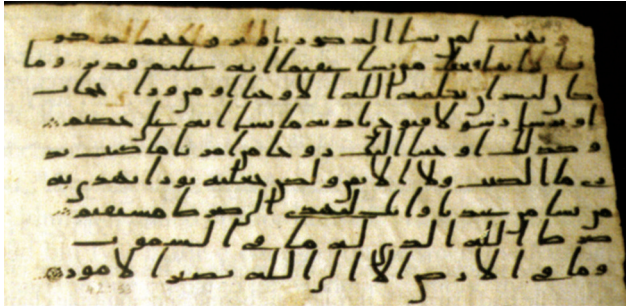 ويهب لمن يشا الذكور او يزوجهم ذكر
نا وانثا ويجعل من يشا عقيما انه عليم قدير وما
كان لبشر ان يكلمه الله الا وحيا او من ورا حجاب
او يرسل رسولا فيوحي باذنه ما يشا انه علي حكيم
وكذلك اوحينا اليك روحا من امرنا ما كنت تد
ري ما الكتب ولا الايمن ولكن جعلنه نورا نهدي به
من نشا من عبدنا وانك لتهدي الى صرط مستقيم
صرط الله الذي له ما في السموت
وما في الارض الا الى الله تصير الامور